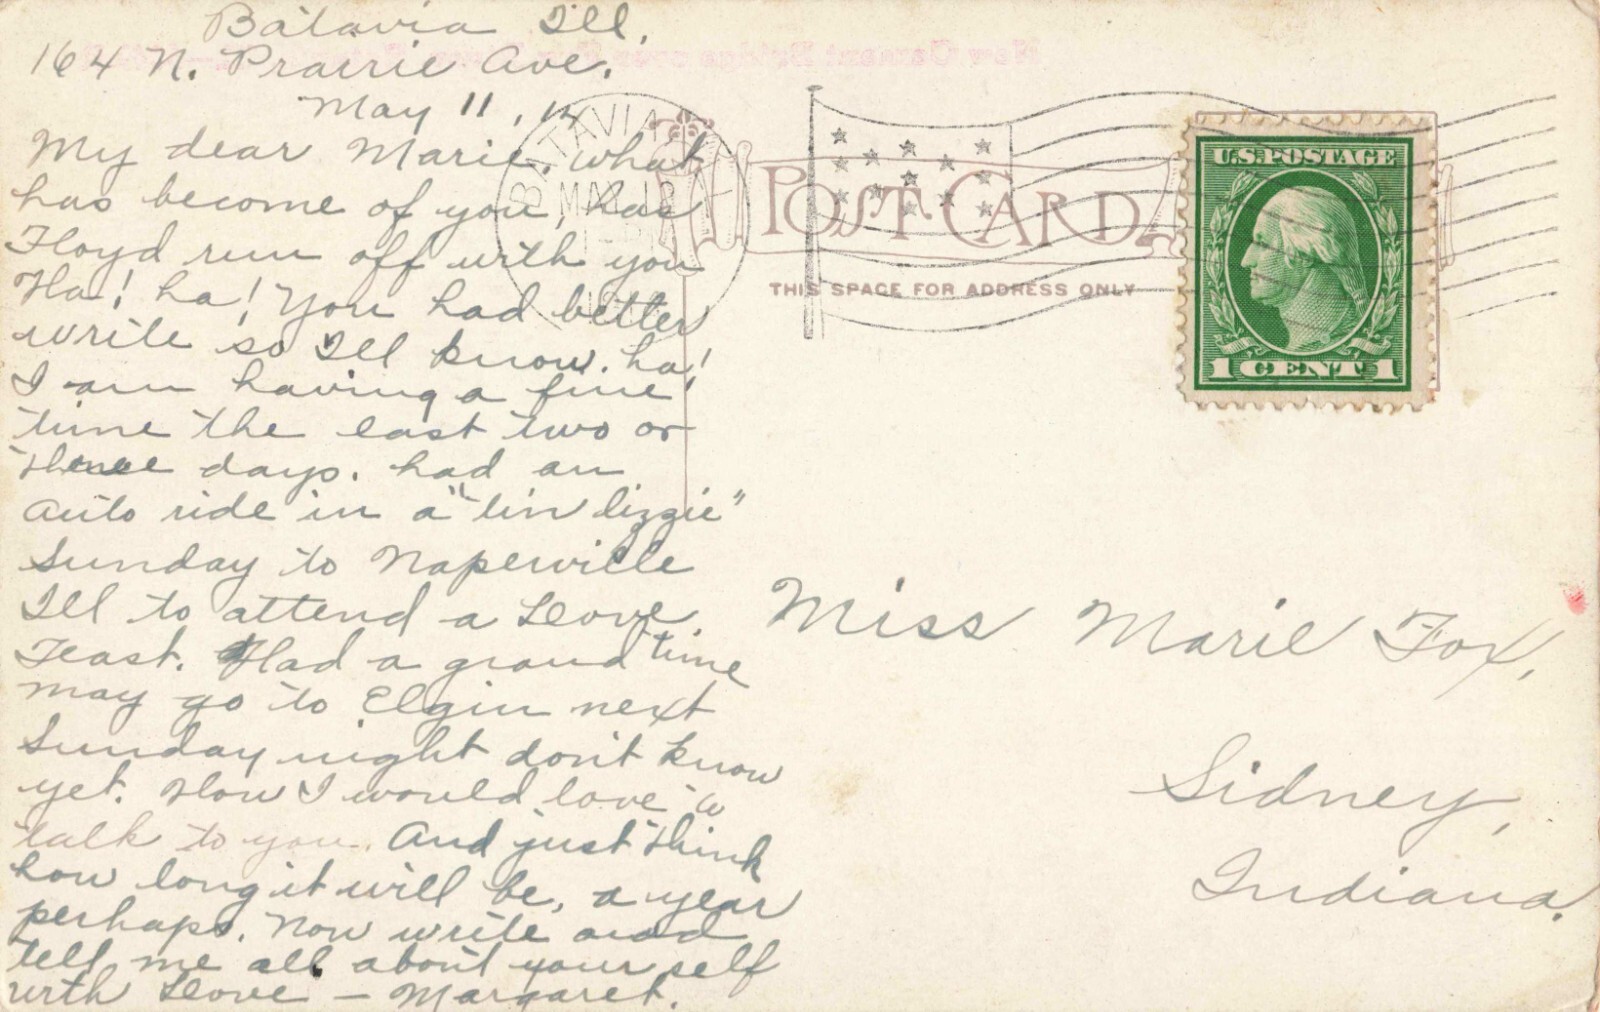 Batavia Ill.
164 N. Prairie Ave.
May 11,
My dear Marie, what
has become of you, has
Floyd run off with you
Ha! ha! You had better
write so Ill know. ha!
I am having a fine
time the last two or
three days. had an
auto ride in a "tin lizzie"
Sunday to Naperville
Ill to attend a Love
Feast. Had a grand time
may go to Elgin next
Sunday night don't know
yet. How I would love to
talk to you. And just think
how long it will be, a year
perhaps. Now write and
tell me all about your self
with Love – Margaret.
BATAVIA
MAY 12
POST CARD
THIS SPACE FOR ADDRESS ONLY
U.S. POSTAGE
1 CENT 1
Miss Marie Fox,
Sidney,
Indiana.